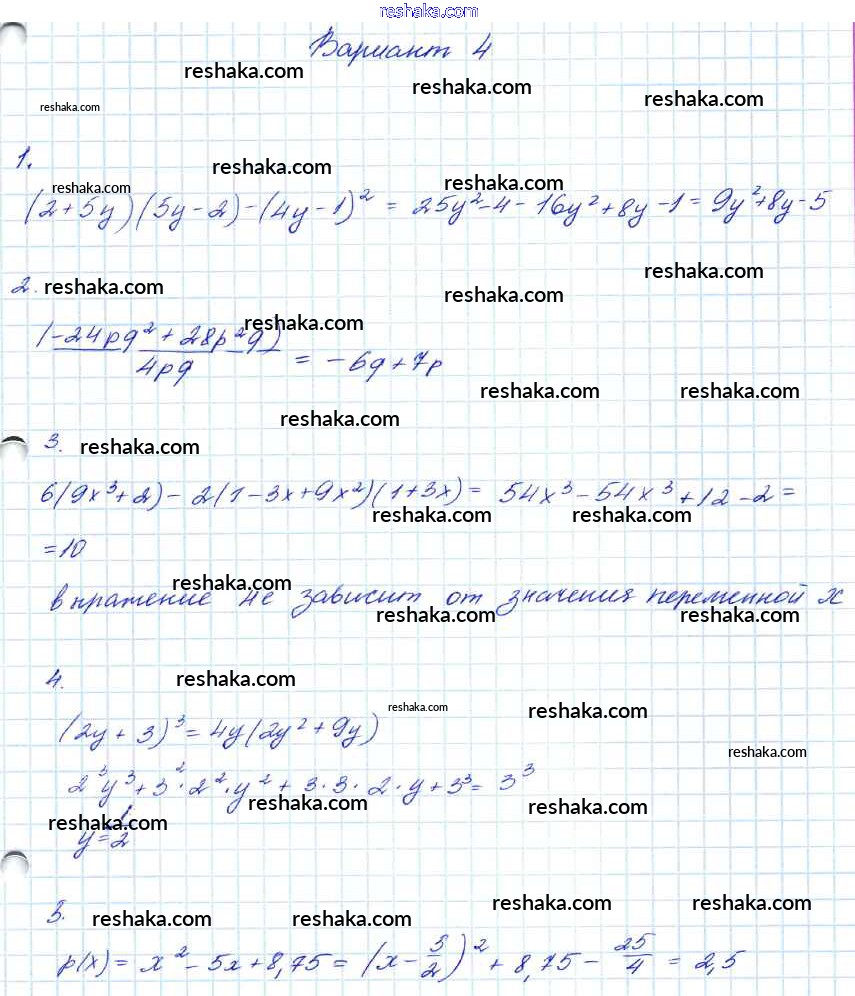 reshaka.com
Вариант 4
reshaka.com
reshaka.com
reshaka.com
reshaka.com
1.
reshaka.com
reshaka.com
reshaka.com
(2+5y)(5y-2)-(4y-1)² = 25y²-4-16y²+8y-1 = 9y²+8y-5
reshaka.com
2.
reshaka.com
reshaka.com
reshaka.com
(-24pq²+28p²q)
4pq
= -6q+7p
reshaka.com
reshaka.com
reshaka.com
3.
reshaka.com
6(9x³+2)-2(1-3x+9x²)(1+3x)= 54x³-54x³+12-2=
reshaka.com
reshaka.com
=10
reshaka.com
выражение не зависит от значения переменной x
reshaka.com
reshaka.com
4.
reshaka.com
reshaka.com
reshaka.com
(2y+3)³=4y(2y²+9y)
reshaka.com
2³y³+3²·2²·y²+3·3·2·y+3³= 3³
reshaka.com
reshaka.com
reshaka.com
y=1/2
5.
reshaka.com
reshaka.com
reshaka.com
reshaka.com
p(x)= x²-5x+8,75=(x-5/2)²+8,75-25/4=2,5